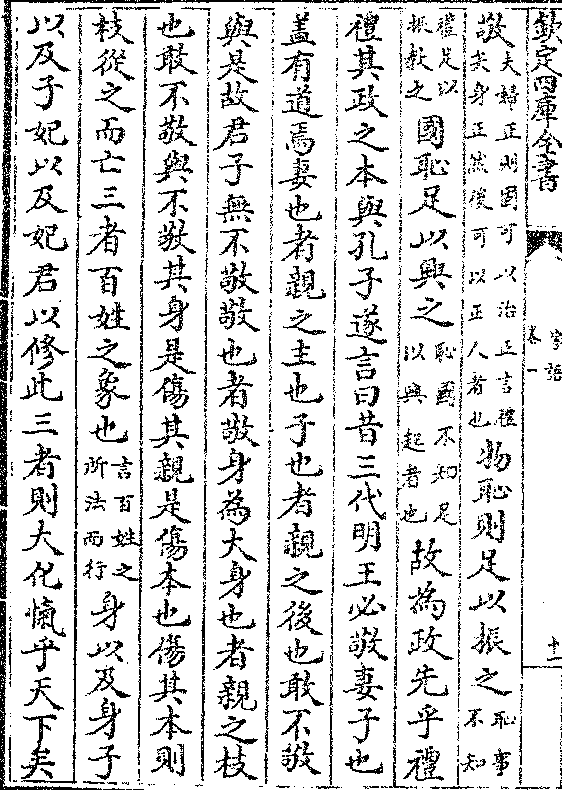 欽定四庫全書
家語
卷一
十一
敬夫婦正則國可以治正言禮矣身正然後可以正人者也物恥則足以振之恥事不知
禮足以振教之國恥足以興之恥國不知足以興起者也故為政先乎禮
禮其政之本與孔子遂言曰昔三代明王必敬妻子也
蓋有道焉妻也者親之主也子也者親之後也敢不敬
與是故君子無不敬敬也者敬身為大身也者親之枝
也敢不敬與不敬其身是傷其親是傷本也傷其本則
枝從之而亡三者百姓之象也言百姓之所法而行身以及身子
以及子妃以及妃君以修此三者則大化愾乎天下矣